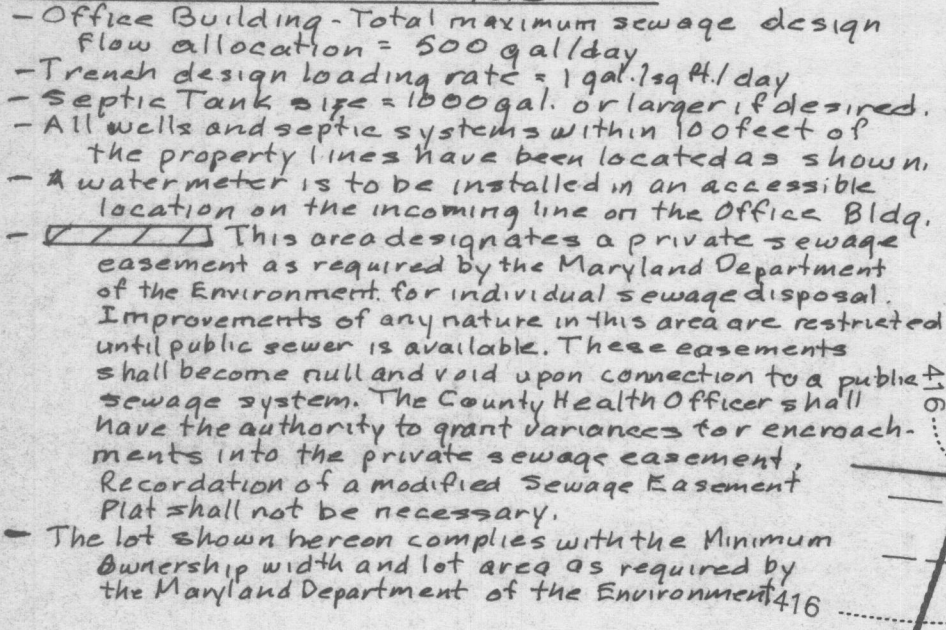 - Office Building - Total maximum sewage design
flow allocation = 500 gal/day
- Trench design loading rate = 1 gal./sq ft./day
- Septic Tank size = 1000 gal. or larger if desired.
- All wells and septic systems within 100 feet of
the property lines have been located as shown.
- A water meter is to be installed in an accessible
location on the incoming line on the Office Bldg.
- This area designates a private sewage
easement as required by the Maryland Department
of the Environment for individual sewage disposal.
Improvements of any nature in this area are restricted
until public sewer is available. These easements
shall become null and void upon connection to a public
sewage system. The County Health Officer shall
have the authority to grant variances for encroach-
ments into the private sewage easement.
Recordation of a modified Sewage Easement
Plat shall not be necessary.
- The lot shown hereon complies with the Minimum
Ownership width and lot area as required by
the Maryland Department of the Environment
416
416